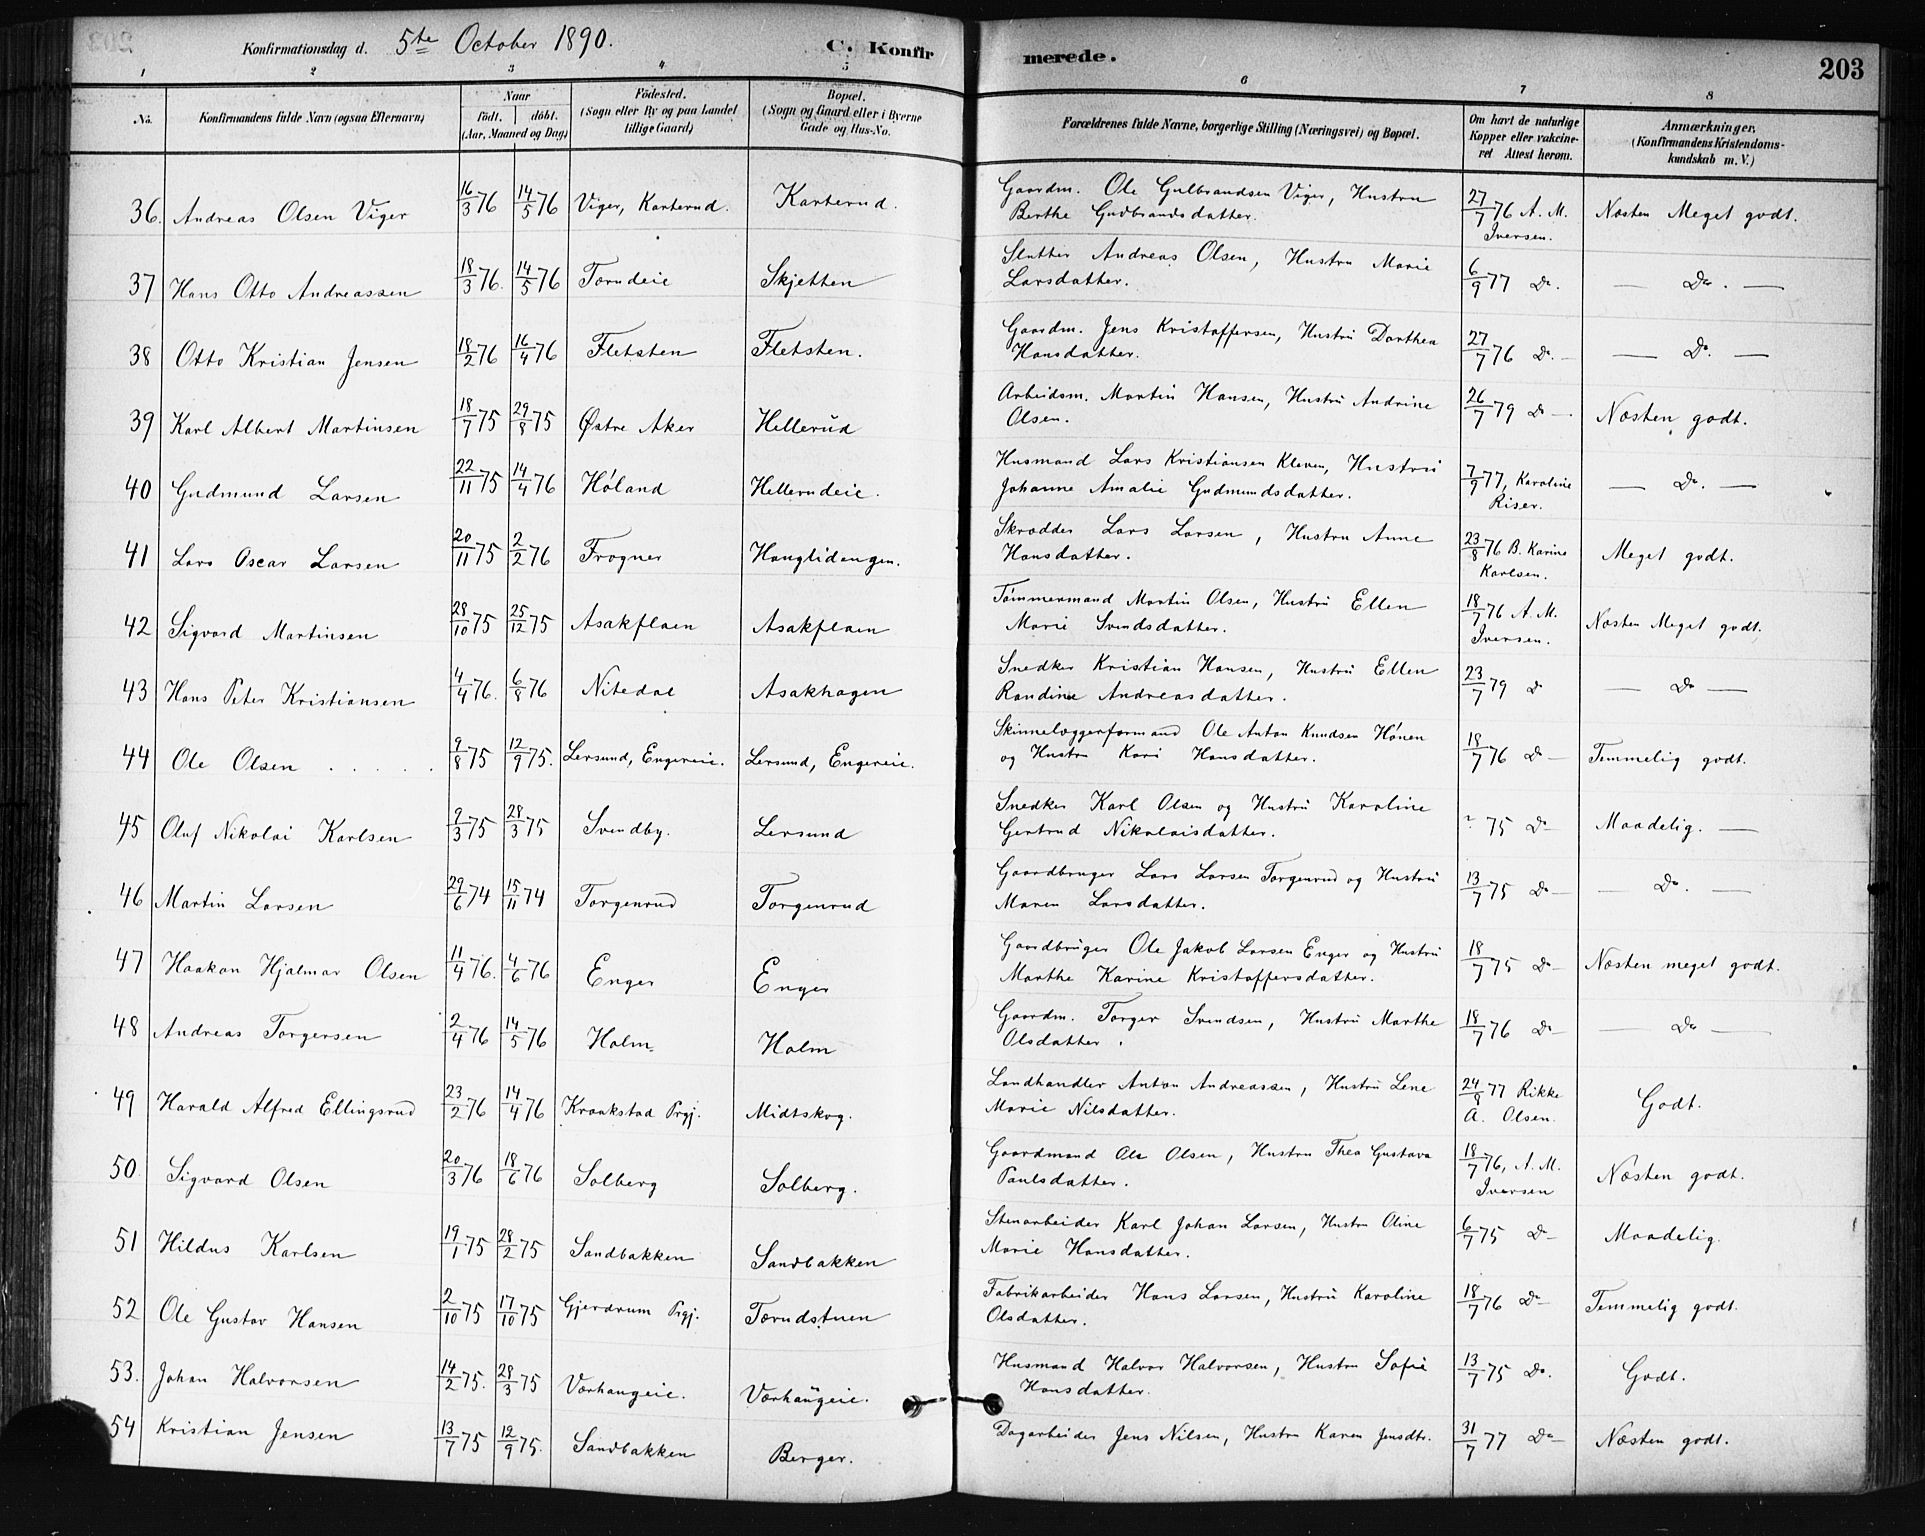 Konfirmationsdag d. 5te October 1890. C. Konfir merede. 203
1 2 3 4 5 6 7 8
No. Konfirmandens fulde Navn (ogsaa Efternavn) Naar födt. döbt. (Aar, Maaned og Dag) Födested. (Sogn eller By og paa Landet tillige Gaard) Bopæl. (Sogn og Gaard eller i Byerne Gade og Hus-No. Forældrenes fulde Navne, borgerlige Stilling (Næringsvei) og Bopæl. Om havt de naturlige Kopper eller vakcineret Attest herom. Anmærkninger, (Konfirmandens Kristendomskundskab m. V.)
36. Andreas Olsen Viger 16/3 76 14/5 76 Viger, Karterud. Karterud. Gaardm. Ole Gulbrandsen Viger, Hustru Berthe Gudbrandsdatter. 27/7 76 A. M. Iversen. Næsten Meget godt.
37 Hans Otto Andreassen 18/3 76. 14/5 76 Tærudeie Skjetten Slutter Andreas Olsen, Hustru Marie Larsdatter. 6/9 77 Do. — Do. —
38 Otto Kristian Jensen 18/2 76 16/4 76 Fletsten Fletsten. Gaardm. Jens Kristoffersen, Hustru Dorthea Hansdatter. 27/7 76 Do. — — Do. —
39 Karl Albert Martinsen 18/7 75 29/8 75 Østre Aker Hellerud Arbeidsm. Martin Hansen, Hustru Andrine Olsen. 26/7 79 Do — Næsten godt.
40 Gudmund Larsen 22/11 75 14/4 76 Høland Hellerudeie. Husmand Lars Kristiansen Kleven, Hustru Johanne Amalie Gudmundsdatter. 7/9 77, Karoline Riser. — Do. —
41 Lars Oscar Larsen 20/11 75 2/2 76 Frogner Hauglidengen. Skrædder Lars Larsen, Hustru Anne Hansdatter. 23/8 76 B. Karine Karlsen. Meget godt.
42 Sigvard Martinsen 28/10 75 25/12 75 Asakflaen Asakflaen Tømmermand Martin Olsen, Hustru Ellen Marie Svendsdatter. 18/7 76 A. M. Iversen. Næsten Meget godt.
43 Hans Peter Kristiansen 4/4 76. 6/8 76 Nitedal Asakhagen Snedker Kristian Hansen, Hustru Ellen Randine Andreasdatter. 23/7 79 Do — Do —
44 Ole Olsen . . . . . 9/8 75 12/9 75. Lersund, Engereie. Lersund, Engereie. Skinnelæggerformand Ole Anton Knudsen Hønen og Hustru Kari Hansdatter. 18/7 76 Do — Temmelig godt.
45 Oluf Nikolai Karlsen 9/3 75 28/3 75 Svendby. Lersund Snedker Karl Olsen og Hustru Karoline Gertrud Nikolaisdatter. ? 75 Do — Maadelig. —
46 Martin Larsen 29/6 74 15/11 74 Torgenrud Torgenrud Gaardbruger Lars Larsen Torgenrud og Hustru Maren Larsdatter. 13/7 75 Do — — Do. —
47 Haakon Hjalmar Olsen 11/4 76. 4/6 76 Enger Enger Gaardbruger Ole Jakob Larsen Enger og Hustru Marthe Karine Kristoffersdatter. 18/7 75 Do — Næsten meget godt.
48 Andreas Torgersen 2/4 76 14/5 76 Holm Holm Gaardm. Torger Svendsen, Hustru Marthe Olsdatter. 18/7 76 Do — — Do —
49 Harald Alfred Ellingsrud 23/2 76 14/4 76 Kraakstad Prgj. Midtskog. Landhandler Anton Andreassen, Hustru Lene Marie Nilsdatter. 24/8 77 Rikke A. Olsen. Godt.
50. Sigvard Olsen 20/3 76 18/6 76 Solberg Solberg. Gaardmand Ole Olsen, Hustru Thea Gustava Paulsdatter. 18/7 76, A. M. Iversen Næsten godt.
51 Hildus Karlsen 19/1 75 28/2 75 Sandbakken Sandbakken Stenarbeider Karl Johan Larsen, Hustru Oline Marie Hansdatter. 6/7 75 Do — Maadelig.
52 Ole Gustav Hansen 2/10 75 17/10 75 Gjerdrum Prgj. Tærudstuen Fabrikarbeider Hans Larsen, Hustru Karoline Olsdatter. 18/7 76 Do — Temmelig godt.
53. Johan Halvorsen 14/2 75. 28/3 75 Vorhaugeie. Vorhaugeie. Husmand Halvor Halvorsen, Hustru Sofie Hansdatter. 13/7 75 Do. Godt.
54 Kristian Jensen 13/7 75 12/9 75. Sandbakken Berger. Dagarbeider Jens Nilsen, Hustru Karen Jensdtr. 31/7 77 Do — Næsten godt.